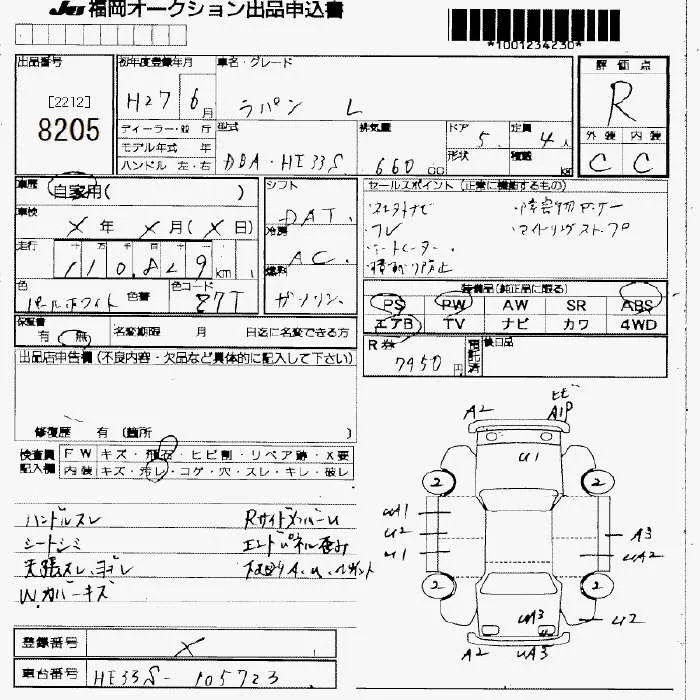 JU 福岡オークション出品申込書
*1001234230*
出品番号
[2212]
8205
初年度登録年月
H27 6月
車名・グレード
ラパン L
評価点
R
外装 内装
C C
ディーラー・般 斤
モデル年式 年
ハンドル 左・右
型式
DBA-HE33S
排気量
660 cc
ドア
5.
定員
4人
形状
積載
kg
車歴
自家用( )
車検
X 年 X 月(X 日)
走行
110,829 km
色
パールホワイト
色替
色コード
Z7T
シフト
DAT.
冷房
AC.
燃料
ガソリン.
セールスポイント (正常に機動するもの)
装備品(純正品に限る)
PS PW AW SR ABS
エアB TV ナビ カワ 4WD
保証書
有・無
名変期限 月 日迄に名変できる方
R券
7450円
預託済
後日品
出品店申告欄 (不良内容・欠品など具体的に記入して下さい)
修復歴 有 (箇所 )
検査員
記入欄
FW キズ・飛石・ヒビ割・リペア跡・X要
内装 キズ・汚レ・コゲ・穴・スレ・キレ・破レ
ハンドルスレ
シートシミ
天張スレ、ヨゴレ
W.カバーキズ
RサイドメンバーU
エンドパネル歪み
A2
ヒビ
A1P
U1
2
2
UA1
U2
U1
A3
UA2
2
2
UA3
U2
A2
UA3
登録番号
X
車台番号
HE33S-105723